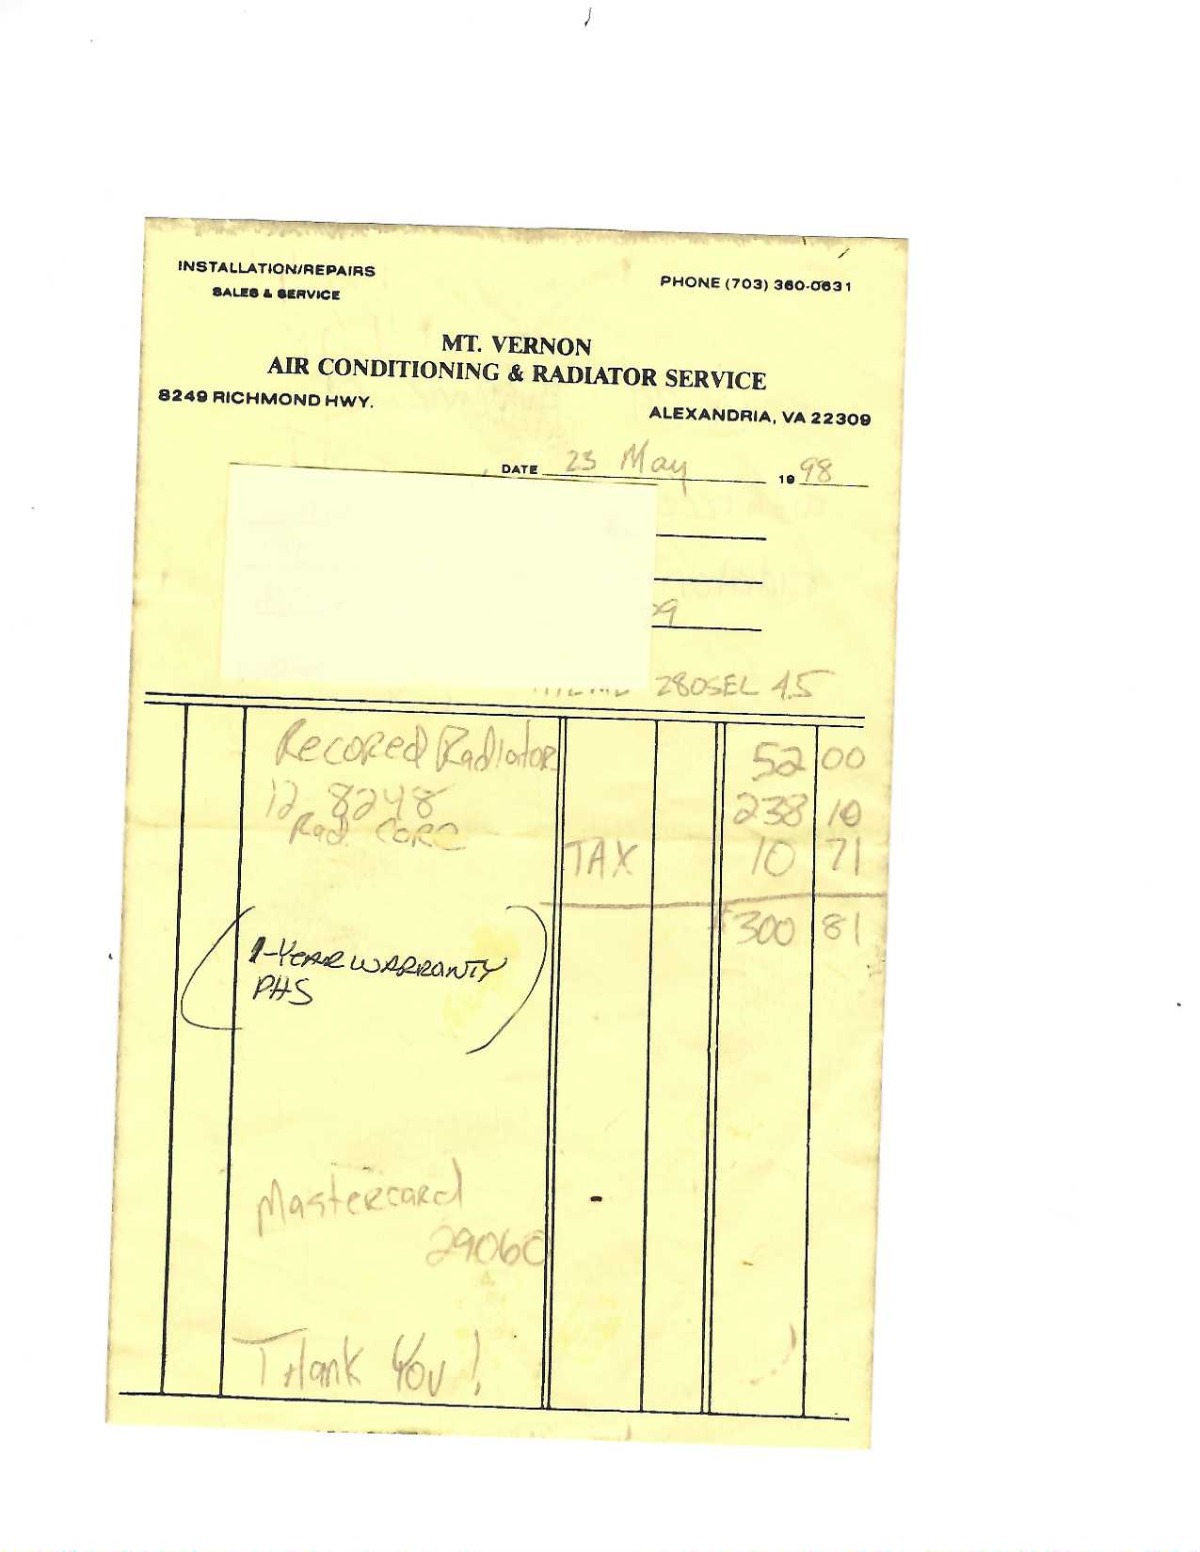 INSTALLATION/REPAIRS
SALES & SERVICE
PHONE (703) 360-0631
MT. VERNON
AIR CONDITIONING & RADIATOR SERVICE
8249 RICHMOND HWY.
ALEXANDRIA, VA 22309
DATE 23 May 19 98
09
280SEL 4.5
Recored Radiator 52 00
12 8248 238 10
Rad. core
TAX 10 71
300 81
1-YEAR WARRANTY
PHS
Mastercard
29060
Thank You!